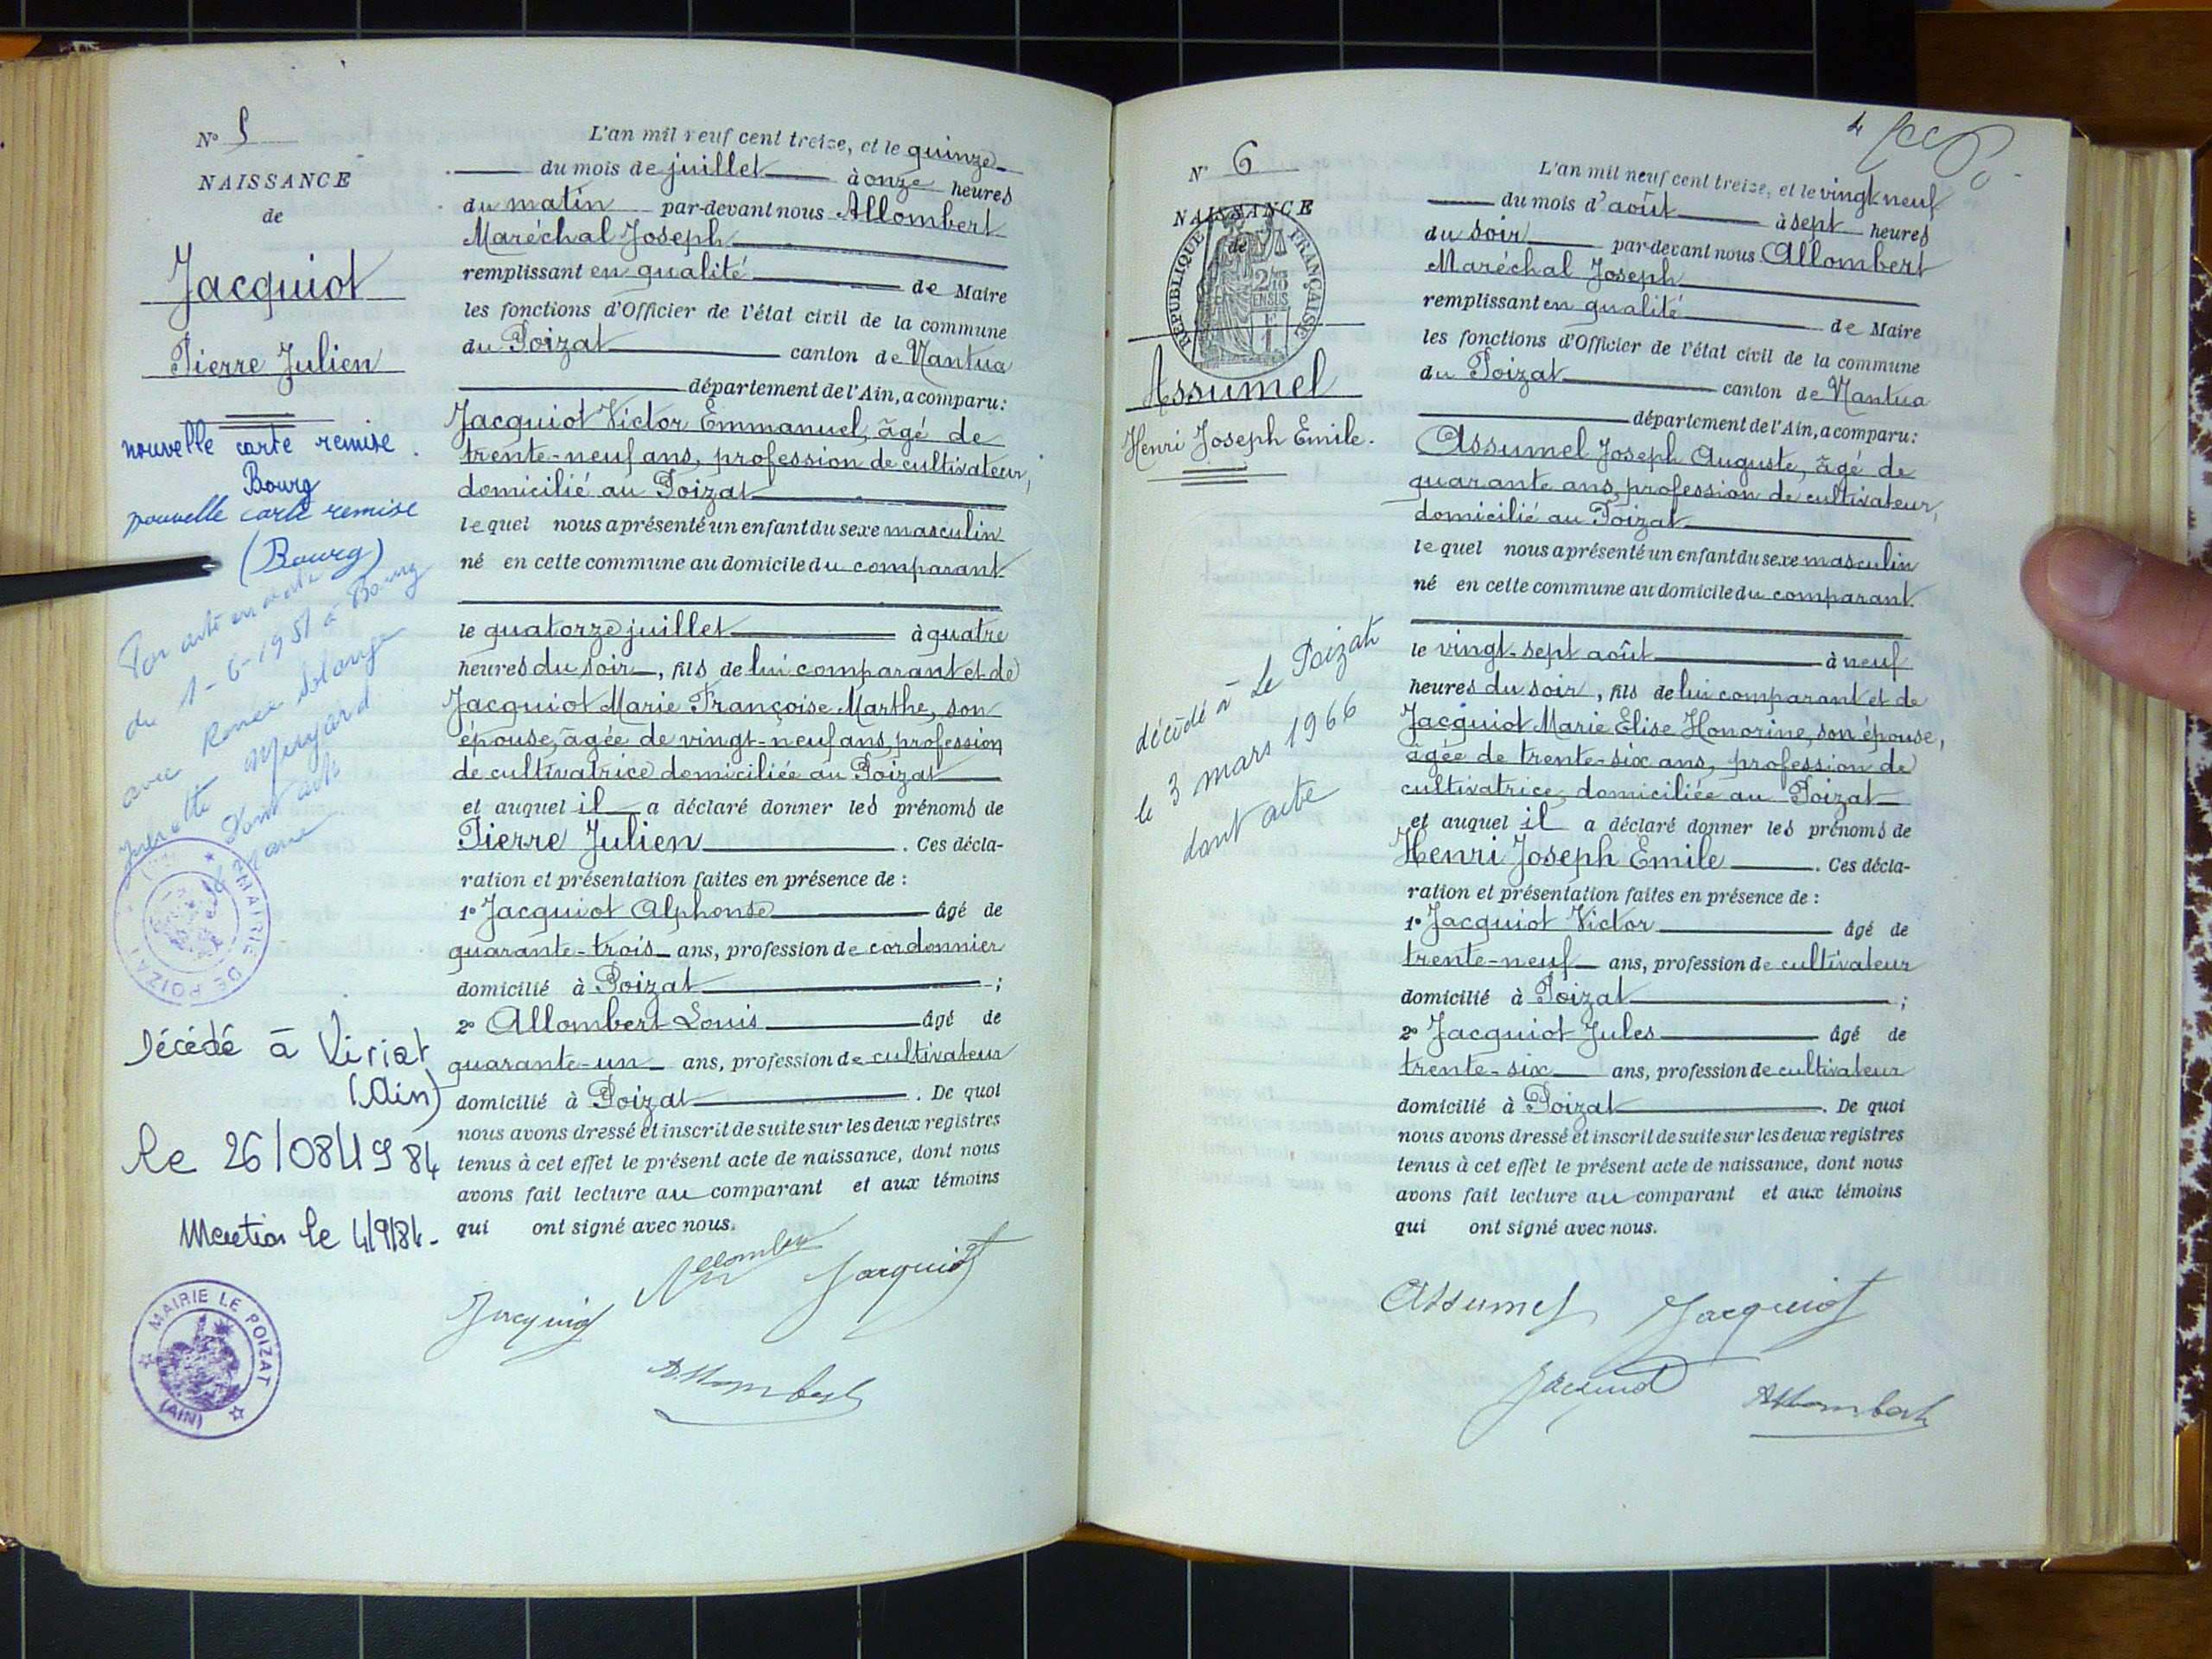 N° 5
NAISSANCE
de
Jacquiot
Pierre Julien
nouvelle carte remise.
Bourg
nouvelle carte remise
(Bourg)
du 1-6-1951 à Bourg
avec Renée
Juliette
Dont acte
MAIRIE DE POIZAT
Décédé à Viriat
(Ain)
le 26/08/1984
Mention le 4/9/84.
MAIRIE LE POIZAT
(AIN)
L'an mil neuf cent treize, et le quinze
du mois de juillet à onze heures
du matin par-devant nous Allombert
Maréchal Joseph
remplissant en qualité de Maire
les fonctions d'Officier de l'état civil de la commune
du Poizat canton de Nantua
département de l'Ain, a comparu:
Jacquiot Victor Emmanuel, âgé de
trente-neuf ans, profession de cultivateur,
domicilié au Poizat
lequel nous a présenté un enfant du sexe masculin
né en cette commune au domicile du comparant
le quatorze juillet à quatre
heures du soir, fils de lui comparant et de
Jacquiot Marie Françoise Marthe, son
épouse, âgée de vingt-neuf ans, profession
de cultivatrice domiciliée au Poizat
et auquel il a déclaré donner les prénoms de
Pierre Julien. Ces décla-
ration et présentation faites en présence de :
1° Jacquiot Alphonse âgé de
quarante-trois ans, profession de cordonnier
domicilié à Poizat ;
2° Allombert Louis âgé de
quarante-un ans, profession de cultivateur
domicilié à Poizat. De quoi
nous avons dressé et inscrit de suite sur les deux registres
tenus à cet effet le présent acte de naissance, dont nous
avons fait lecture au comparant et aux témoins
qui ont signé avec nous.
Allombert Jacquiot
Jacquiot
Allombert
4
N° 6
NAISSANCE
de
REPUBLIQUE FRANÇAISE
2/10 EN SUS
Assumel
Henri Joseph Emile.
décédé à Le Poizat
le 3 mars 1966
dont acte
L'an mil neuf cent treize, et le vingt neuf
du mois d'août à sept heures
du soir par-devant nous Allombert
Maréchal Joseph
remplissant en qualité de Maire
les fonctions d'Officier de l'état civil de la commune
du Poizat canton de Nantua
département de l'Ain, a comparu:
Assumel Joseph Auguste, âgé de
quarante ans, profession de cultivateur,
domicilié au Poizat
lequel nous a présenté un enfant du sexe masculin
né en cette commune au domicile du comparant.
le vingt-sept août à neuf
heures du soir, fils de lui comparant et de
Jacquiot Marie Elise Honorine, son épouse,
âgée de trente-six ans, profession de
cultivatrice, domiciliée au Poizat
et auquel il a déclaré donner les prénoms de
Henri Joseph Emile. Ces décla-
ration et présentation faites en présence de :
1° Jacquiot Victor âgé de
trente-neuf ans, profession de cultivateur
domicilié à Poizat ;
2° Jacquiot Jules âgé de
trente-six ans, profession de cultivateur
domicilié à Poizat. De quoi
nous avons dressé et inscrit de suite sur les deux registres
tenus à cet effet le présent acte de naissance, dont nous
avons fait lecture au comparant et aux témoins
qui ont signé avec nous.
Assumel Jacquiot
Jacquiot Allombert